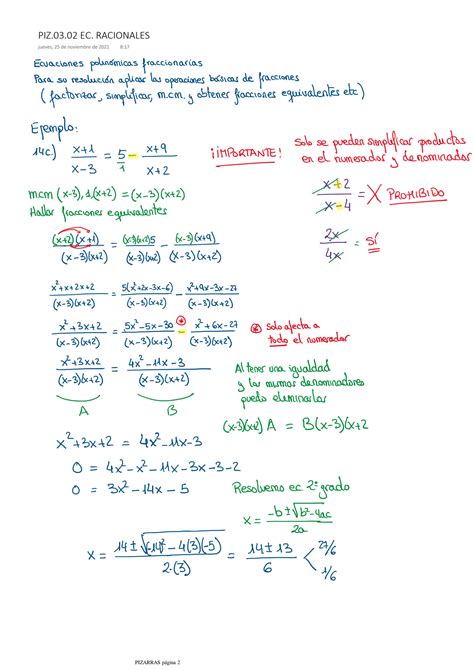 PIZ.03.02 EC. RACIONALES
jueves, 25 de noviembre de 2021 8:17
Ecuaciones polinómicas fraccionarias
Para su resolución aplicar las operaciones básicas de fracciones
(factorizar, simplificar, m.c.m. y obtener fracciones equivalentes etc)
Ejemplo:
14c) (x+1)/(x-3) = 5/1 - (x+9)/(x+2)
¡IMPORTANTE! Solo se pueden simplificar productos
en el numerador y denominador
(x+2)/(x-4) = X PROHIBIDO
2x/4x = SÍ
mcm (x-3), 1, (x+2) = (x-3)(x+2)
Hallar fracciones equivalentes
(x+2)(x+1)/(x-3)(x+2) = (x-3)(x+2)5/(x-3)(x+2) - (x-3)(x+9)/(x-3)(x+2)
x²+x+2x+2/(x-3)(x+2) = 5(x²+2x-3x-6)/(x-3)(x+2) - x²+9x-3x-27/(x-3)(x+2)
x²+3x+2/(x-3)(x+2) = 5x²-5x-30/(x-3)(x+2) - x²+6x-27/(x-3)(x+2)
* Solo afecta a
todo el numerador
x²+3x+2/(x-3)(x+2) = 4x²-11x-3/(x-3)(x+2)
A B
Al tener una igualdad
y los mismos denominadores
puedo eliminarlos
(x-3)(x+2) A = B(x-3)(x+2)
x²+3x+2 = 4x²-11x-3
0 = 4x²-x²-11x-3x-3-2
0 = 3x²-14x-5
Resolvemos ec 2º grado
x = -b±√b²-4ac/2a
x = 14±√(-14)²-4(3)(-5)/2·(3) = 14±13/6 < 27/6
1/6
PIZARRAS página 2